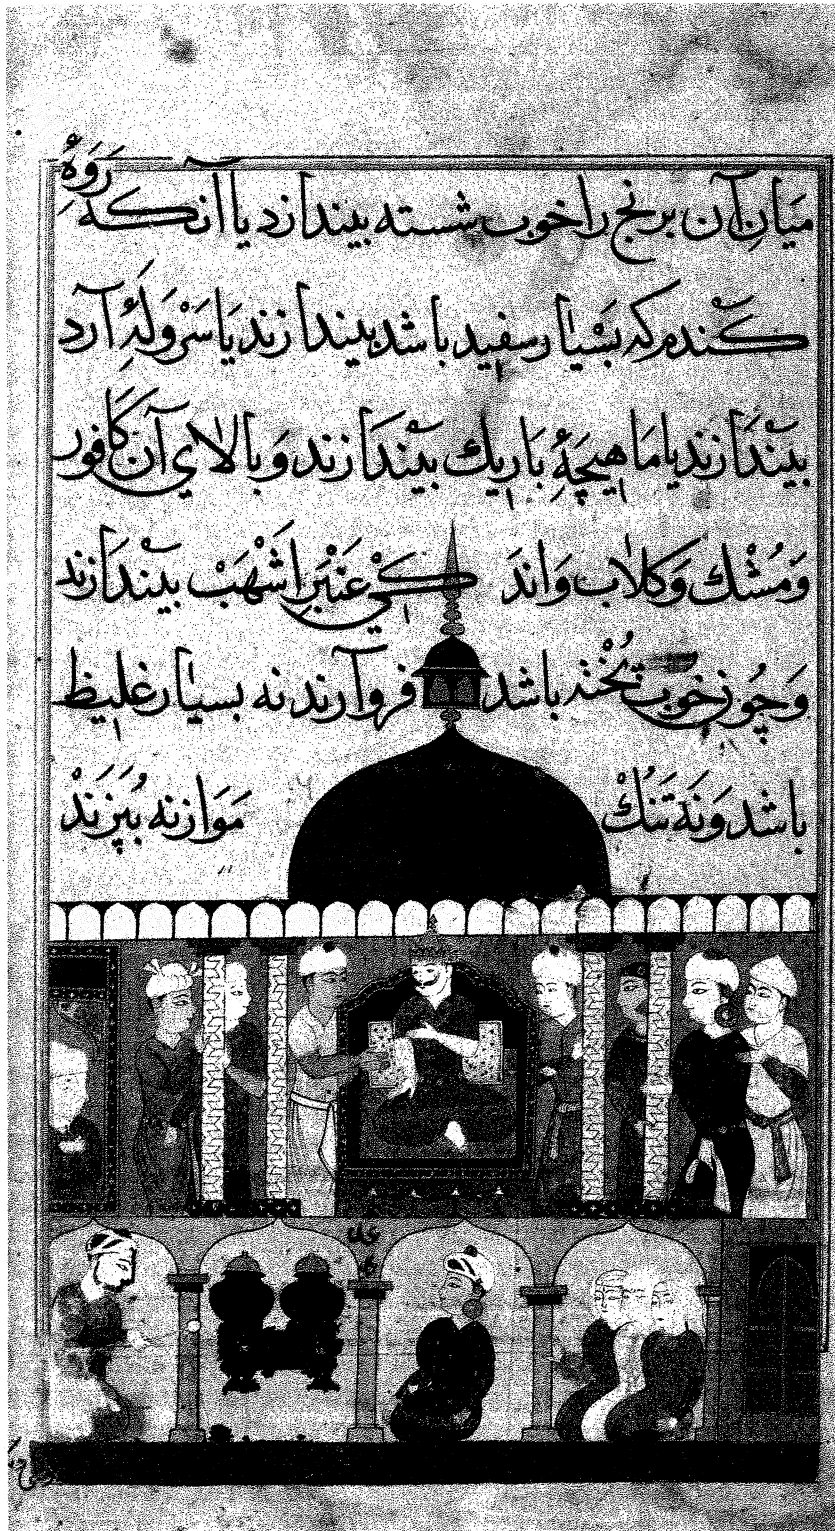 میان آن برنج را خوب شسته بیندازد یا آنکه رَوَهٔ
کندم که بسیار سفید باشد بیندازند یا سَرْوَلَهٔ آرد
بیندازند یا ماهیچهٔ باریك بیندازند و بالای آن کافور
و مُشك و کلاب و اندَکی عنبر اشهب بیندازند
و چون خوب پُخته باشد فرو آرند نه بسیار غلیظ
باشد و نه تنُك موازنه بُپزند